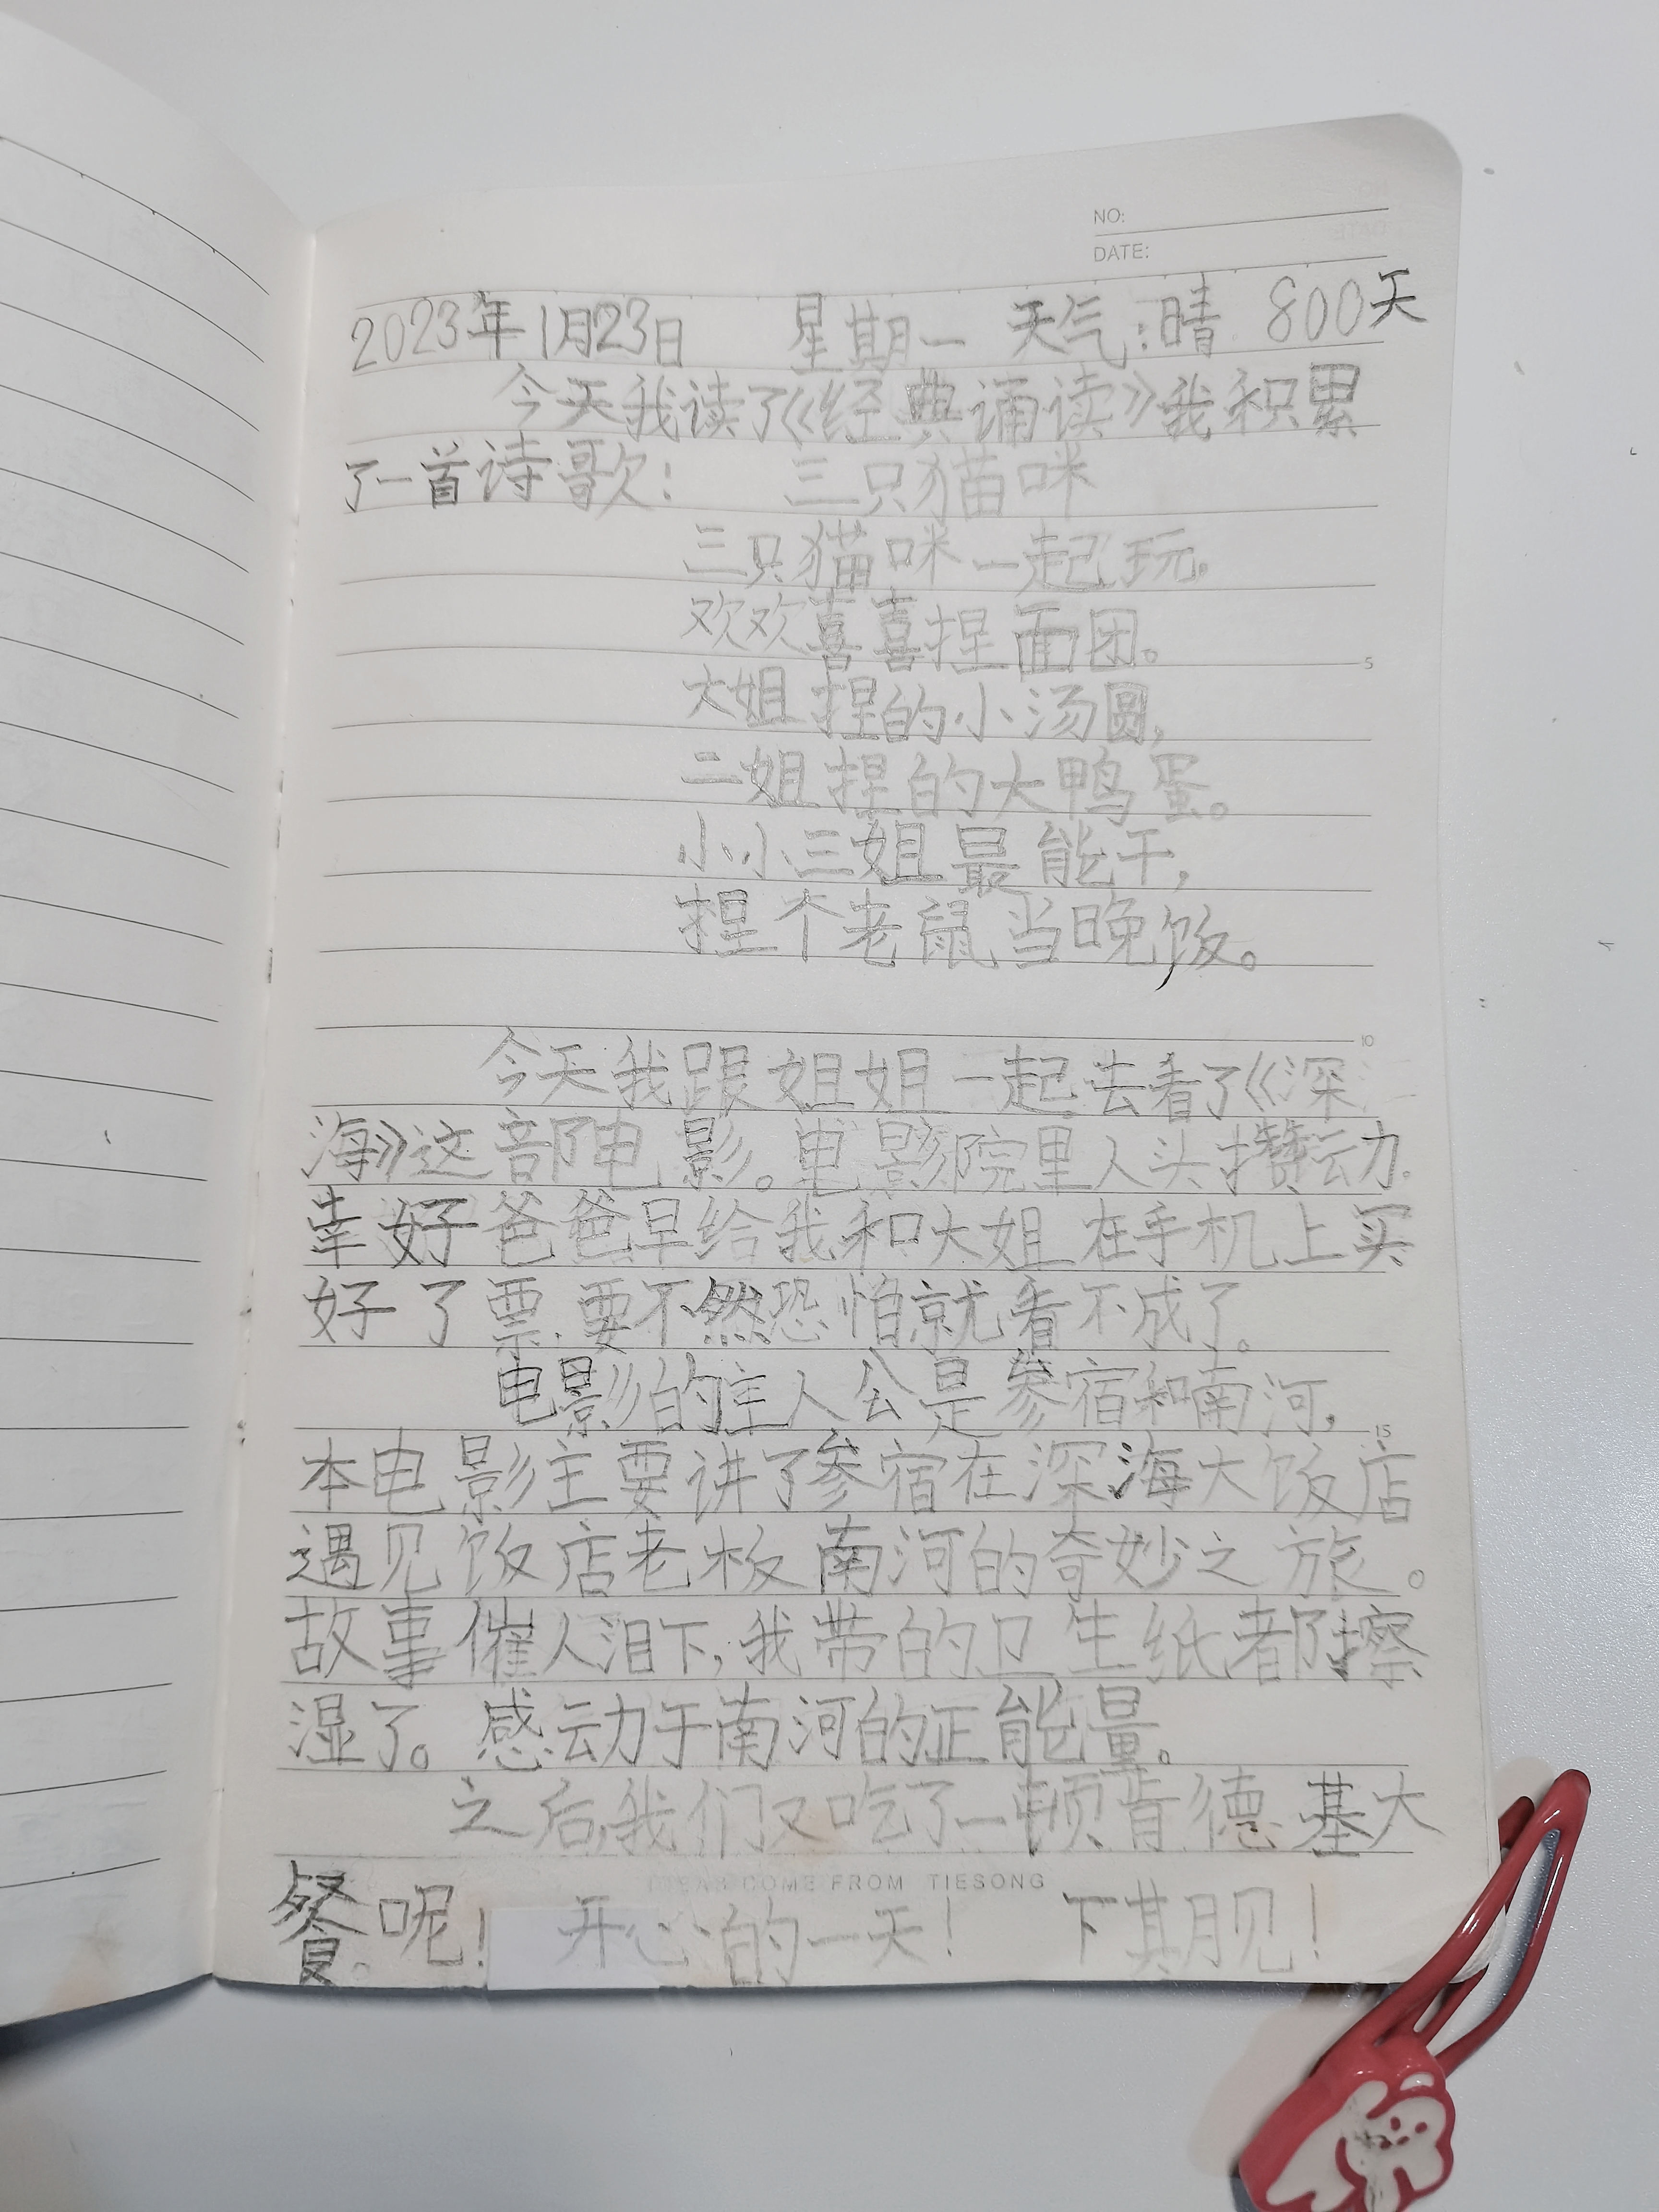 NO:
DATE:
2023年1月23日 星期一 天气:晴 800天
今天我读了《经典诵读》我积累
了一首诗歌: 三只猫咪
三只猫咪一起玩,
欢欢喜喜捏面团。
大姐捏的小汤圆,
二姐捏的大鸭蛋。
小小三姐最能干,
捏个老鼠当晚饭。
今天我跟姐姐一起去看了《深
海》这部电影。电影院里人头攒动.
幸好爸爸早给我和大姐在手机上买
好了票.要不然恐怕就看不成了。
电影的主人公是参宿和南河,
本电影主要讲了参宿在深海大饭店
遇见饭店老板南河的奇妙之旅。
故事催人泪下,我带的卫生纸都擦
湿了。感动于南河的正能量。
之后,我们又吃了一顿肯德基大
COME FROM TIESONG
餐呢! 开心的一天! 下期见!
5
10
15